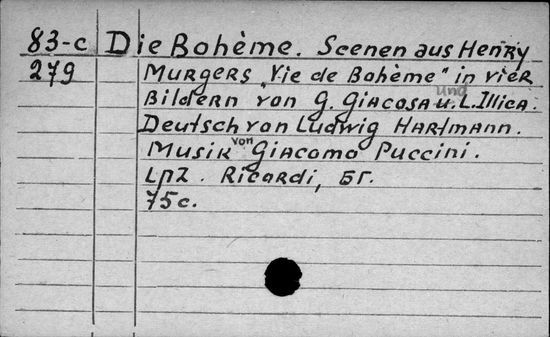 83-c Die Bohème. Scenen aus Henry
279 Murgers „Vie de Bohème" in vier
Bildern von G. Giacosa und u. L. Illica.
Deutsch von Ludwig Hartmann.
Musik von Giacomo Puccini.
Lpz. Ricordi, БГ.
75 c.